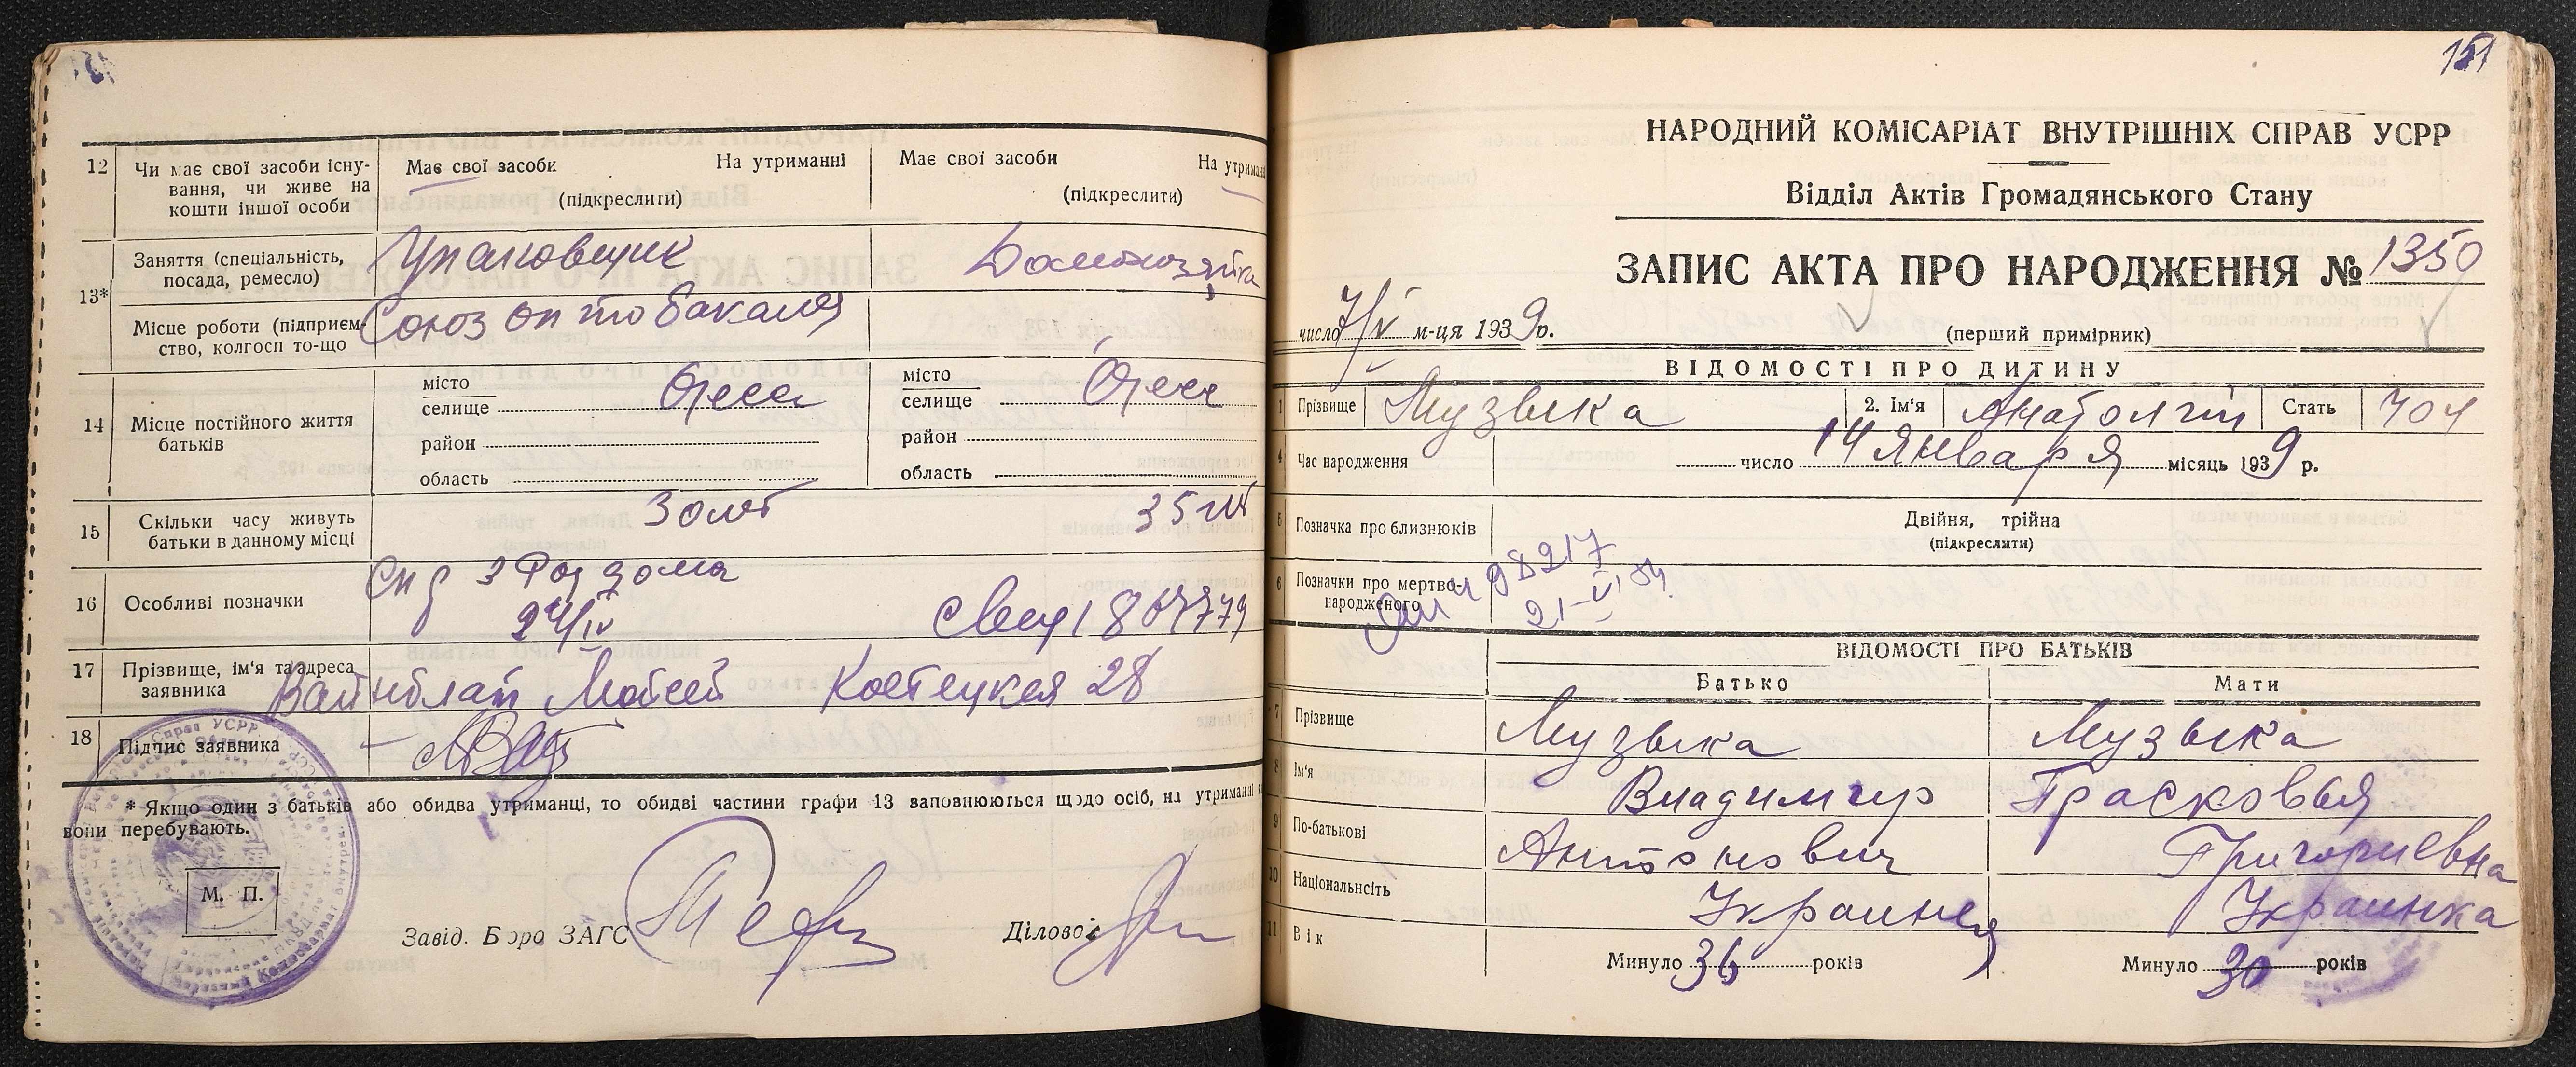 12 Чи має свої засоби існу-
вання, чи живе на
кошти іншої особи
Має свої засоби На утриманні
(підкреслити)
Має свої засоби На утриман
(підкреслити)
13*
Заняття (спеціальність,
посада, ремесло)
Упаковщик Домохозяйка
Місце роботи (підприєм-
ство, колгосп то-що
Союз оптобакалея
14 Місце постійного життя
батьків
місто
селище Одесса
район
область
місто
селище Одесс
район
область
15 Скільки часу живуть
батьки в данному місці
30 лет 35 лет
16 Особливі позначки
Спр 3 Род дома
24/IV
17 Прізвище, ім'я та адреса
заявника
Вайнблат Мойсей Костецкая 28
18 Підпис заявника
* Якщо один з батьків або обидва утриманці, то обидві частини графи 13 заповнюються щодо осіб, на утриманні
вони перебувають.
М. П.
Завід. Бюро ЗАГС Діловод
151
НАРОДНИЙ КОМІСАРІАТ ВНУТРІШНІХ СПРАВ УСРР
Відділ Актів Громадянського Стану
ЗАПИС АКТА ПРО НАРОДЖЕННЯ № 1350
число 7/V м-ця 1939 р.
(перший примірник)
ВІДОМОСТІ ПРО ДИТИНУ
1 Прізвище Музыка 2. Ім'я Анатолий Стать чол
4 Час народження число 14 Января місяць 1939 р.
5 Позначка про близнюків Двійня, трійна
(підкреслити)
6 Позначки про мертво-
народженого
98217
21-VI 54
ВІДОМОСТІ ПРО БАТЬКІВ
Батько Мати
7 Прізвище Музыка Музыка
8 Ім'я Владимир Прасковья
9 По-батькові Антонович Григориевна
10 Національність Украинец Украинка
11 Вік Минуло 36 років Минуло 30 років